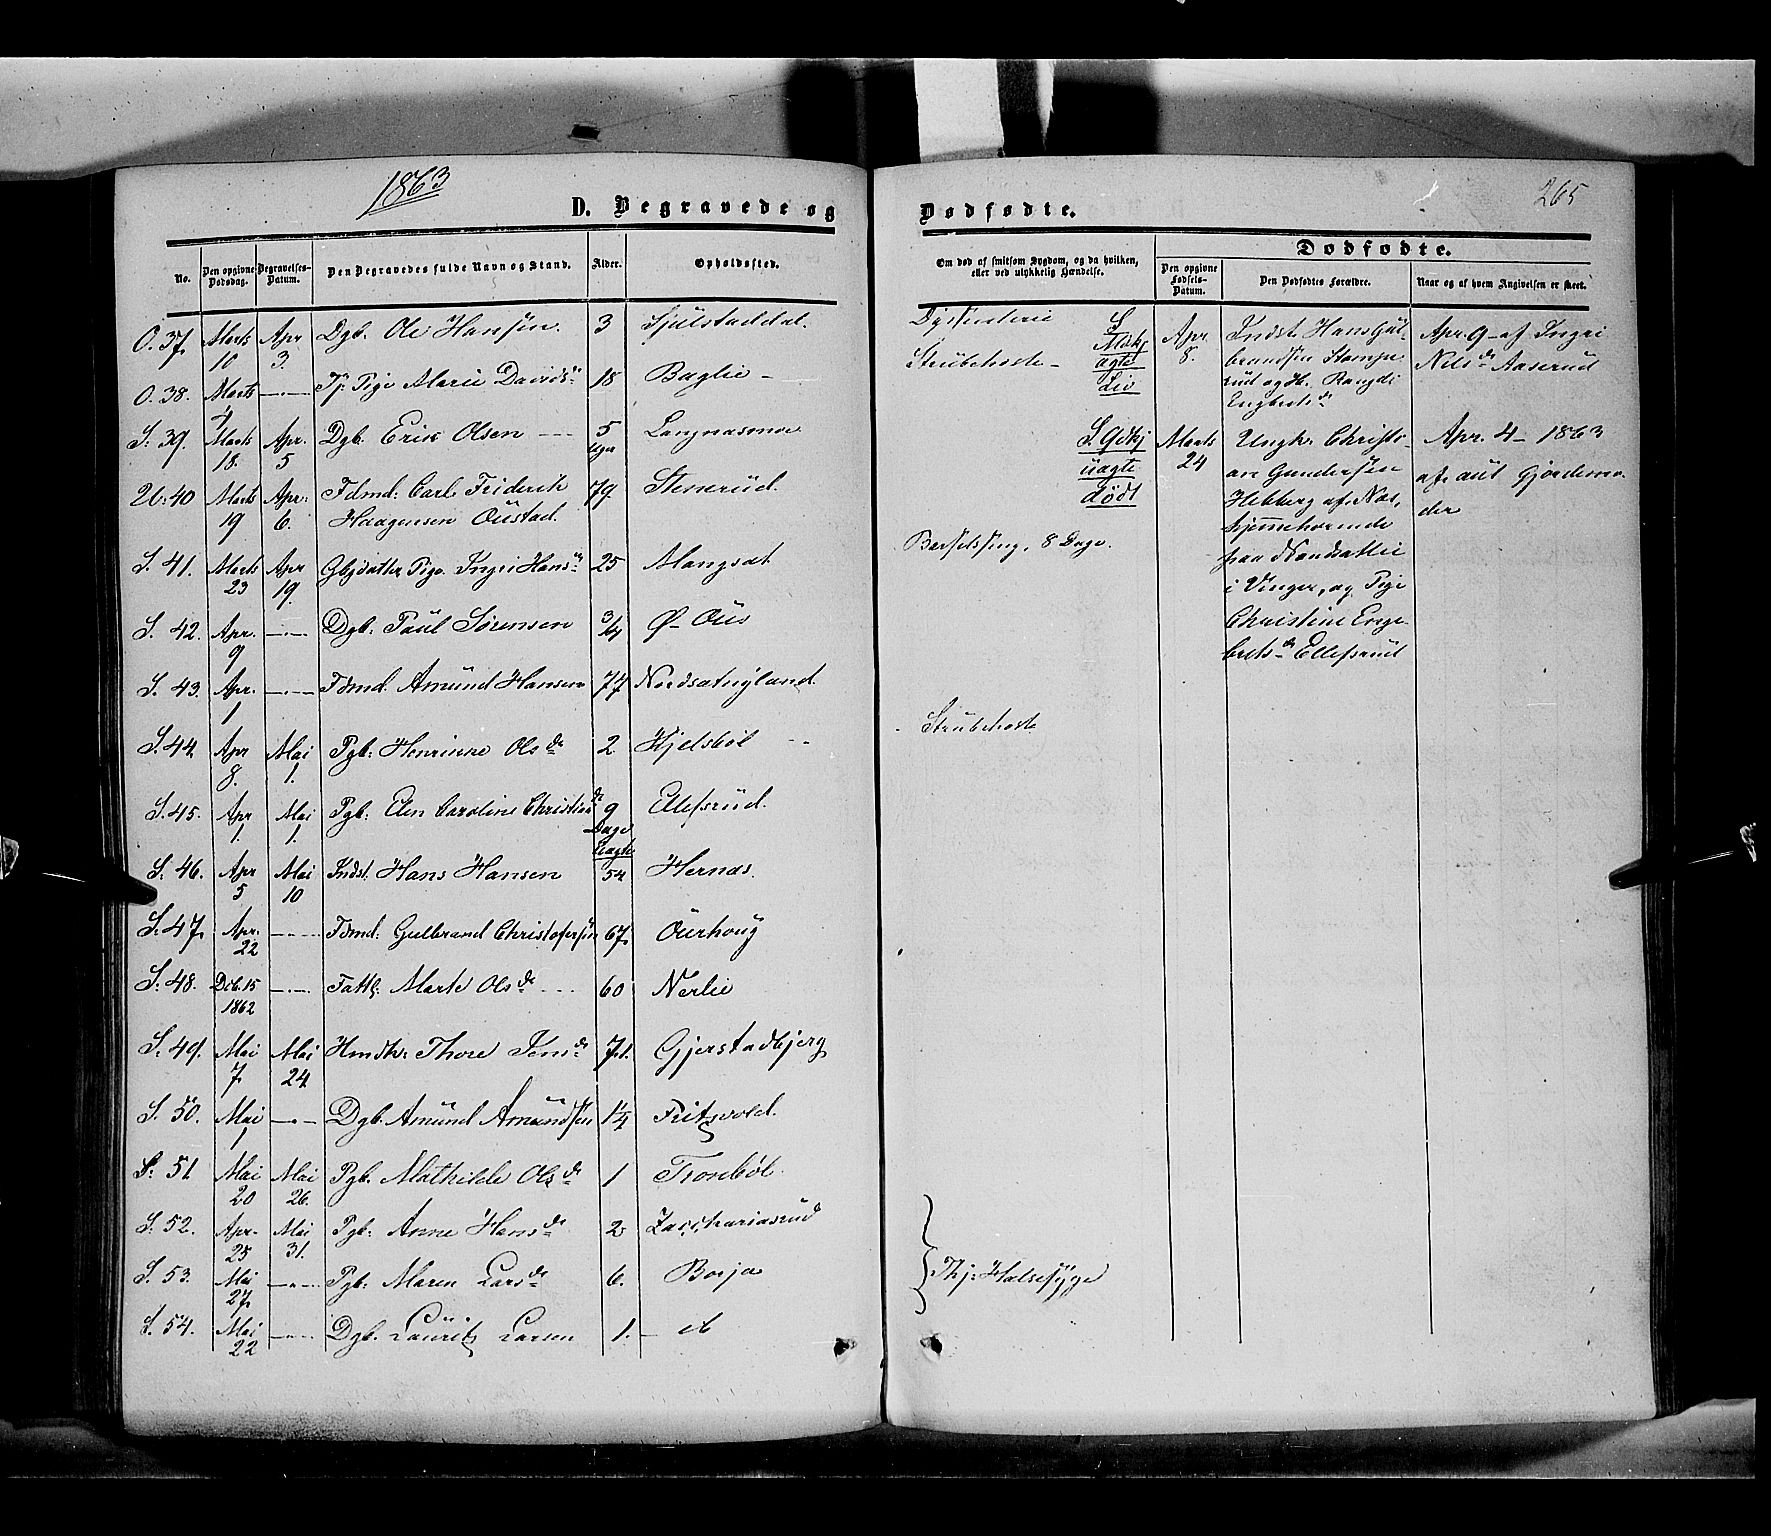 1863
D. Begravede og
No.
Den opgivne Dødsdag.
Begravelses-Datum.
Den Begravedes fulde Navn og Stand.
Alder.
Opholdssted.
O. 37. Marts 10 Apr 3. Dgb. Ole Hansen. 3 Sjulstaddal.
O. 38. Marts 4 —"— Tj. Pige Marie Davidsd. 18 Baglie —
S: 39. Marts 18. Apr. 5 Dgb. Erik Olsen --- 5 Uger Langnasmoe
Ub: 40 Marts 19 Apr: 6. Fdmd: Carl Friderik 79. Stenerüd.
Haagensen Oüstad.
S. 41. Marts 23 Apr 19. Gbgdatter Pige Ingri Hansd. 25 Mangsat
S. 42. Apr. 9 —"— Dgb: Paül Sørensen 3/4 Ø- Oüs
S. 43. Apr. 1 —"— Fdmd. Amünd Hansen 77 Nordsatnyland.
S. 44. Apr 8. Mai 1. Pgb: Henrinne Olsd. 2 Kjelsbøl --
S. 45. Apr 1. Mai 1. Pgb: Elen Caroline Christiansd. 9 Dage Uagte Ellefsrüd.
S. 46. Apr 5 Mai 10 Indst. Hans Hansen 54 Hernas.
S. 47. Apr. 22 —"— Fdmd: Gulbrand Christofersen 67. Oürhoüg
S. 48. Dcb. 15 1862 —"— Fattl: Marte Olsd. --- 60 Nerlie
S: 49. Mai 7. Mai 24 Hmdkr: Thore Jensd. 71. Gjerstadbjerg
S. 50. Mai 1 —"— Dgb. Amünd Amündsen 1 1/4 Fritzvold.
S: 51. Mai 20 Mai 26. Pgb. Mathilde Olsd. 1 Tronbøl
S. 52. Apr. 25 Mai 31. Pgb: Anne Hansd. 2 Zacchariasrüd
S. 53. Mai 27. —"— Pgb: Maren Larsd. 6. Borja
S. 54. Mai 22 —"— Dgb. Laüritz Larsen 1. —
265
Dødfødte.
Om død af smitsom Sygdom, og da hvilken,
eller ved ulykkelig Hændelse.
Dødfødte.
Den opgivne Fødsels-Datum.
Den Dødfødtes Forældre.
Naar og af hvem Angivelsen er skeet.
Dyssenterie
Strübehoste —
Barselsseng, 8 Dage.
Strübehoste
Thj: Halsesyge
S
agte
Apr. 8.
Indst. Hans Gül-
brandsen Stamp-
rüd og H. Rangdi
Engbretsd.
Apr. 9 — af Ingri
Nilsd. Aaserüd
S
üagte
dødt
Marts 24
Ungkr. Christi-
an Gundersen
Hebberg af Nos,
hjemmehørende
paa Nordsatlie
i Vinger, og Pige
Christine Enge-
bretsd. Ellefsrüd
Apr. 4 — 1863
af aut Gjordemo-
der